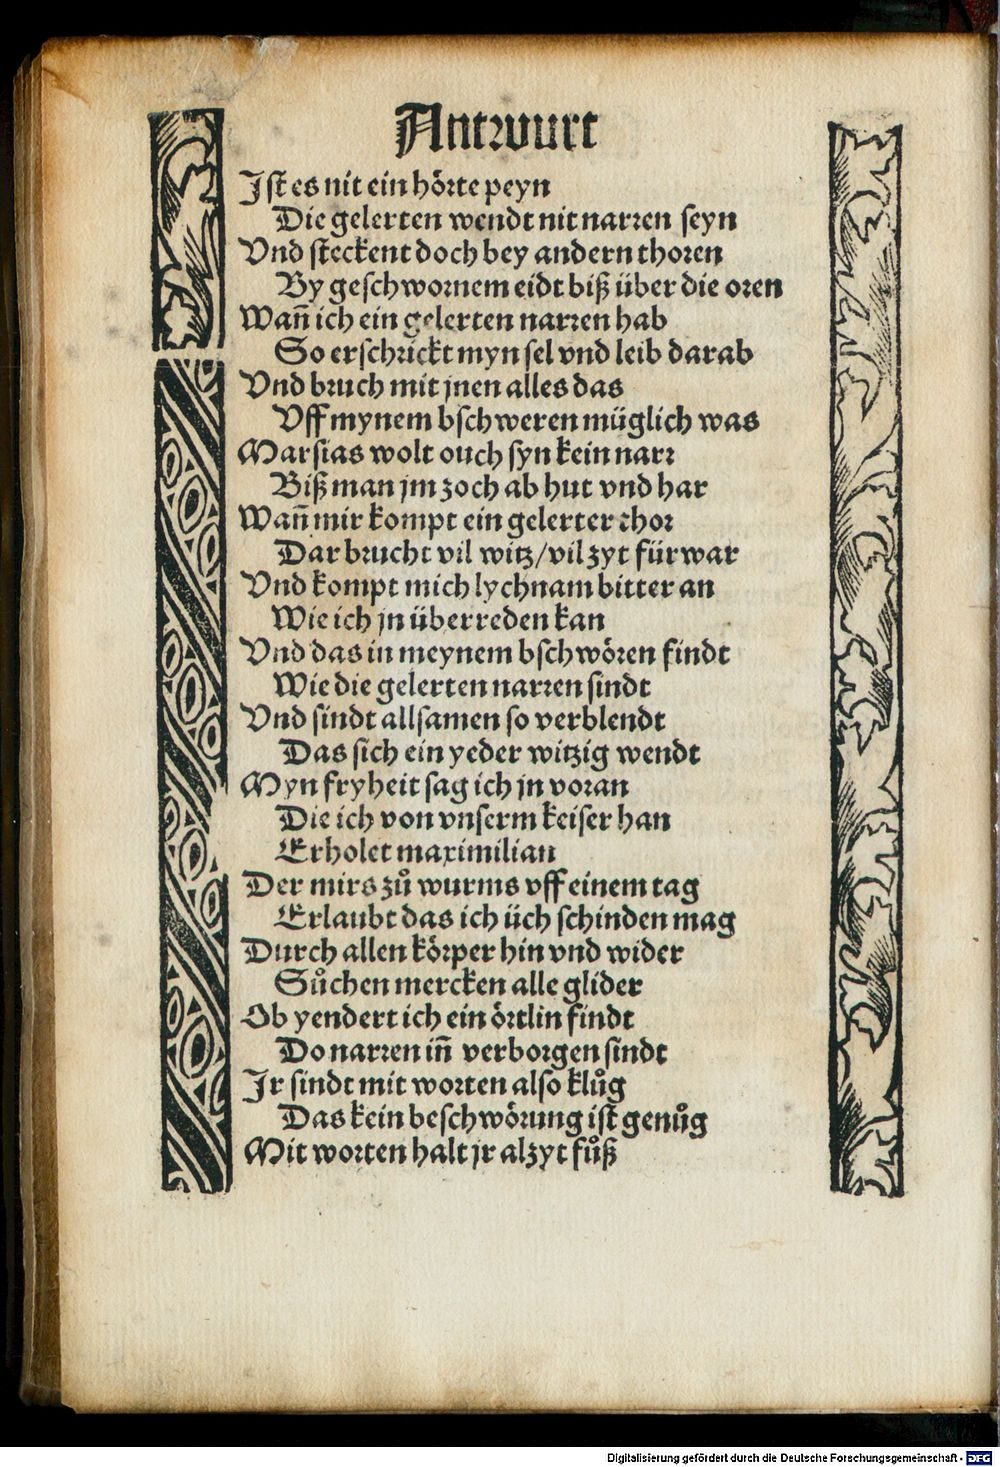 Antwurt
Ist es nit ein hörte peyn
Die gelerten wendt nit narren seyn
Vnd steckent doch bey andern thoren
By geschwornem eidt biß über die oren
Wañ ich ein gelerten narren hab
So erschrickt myn sel vnd leib darab
Vnd bruch mit jnen alles das
Vff mynem bschweren müglich was
Marsias wolt ouch syn kein narr
Biß man jm zoch ab hut vnd har
Wañ mir kompt ein gelerter thor
Dar brucht vil witz/vil zyt fürwar
Vnd kompt mich lychnam bitter an
Wie ich jn überreden kan
Vnd das in meynem bschwören findt
Wie die gelerten narren sindt
Vnd sindt allsamen so verblendt
Das sich ein yeder witzig wendt
Myn fryheit sag ich jn voran
Die ich von vnserm keiser han
Erholet maximilian
Der mirs zů wurms vff einem tag
Erlaubt das ich üch schinden mag
Durch allen körper hin vnd wider
Sůchen mercken alle glider
Ob yendert ich ein örtlin findt
Do narren iñ verborgen sindt
Ir sindt mit worten also klůg
Das kein beschwörung ist genůg
Mit worten halt jr alzyt fůß
Digitalisierung gefördert durch die Deutsche Forschungsgemeinschaft - DFG